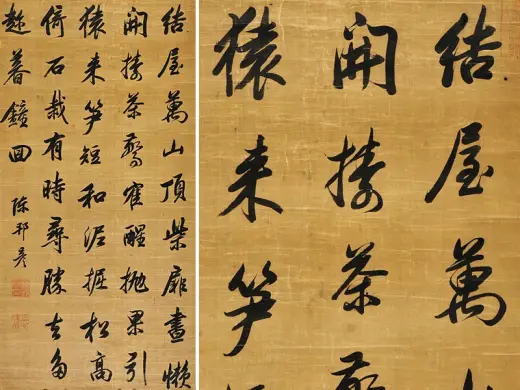 結屋萬山頂柴扉晝懶
開擣茶驚寉醒抛果引
猿来笋短和泥掘松高
倚石栽有時尋勝去多
趂暮鐘回
陳邦彥
結屋萬
開擣茶
猿来笋